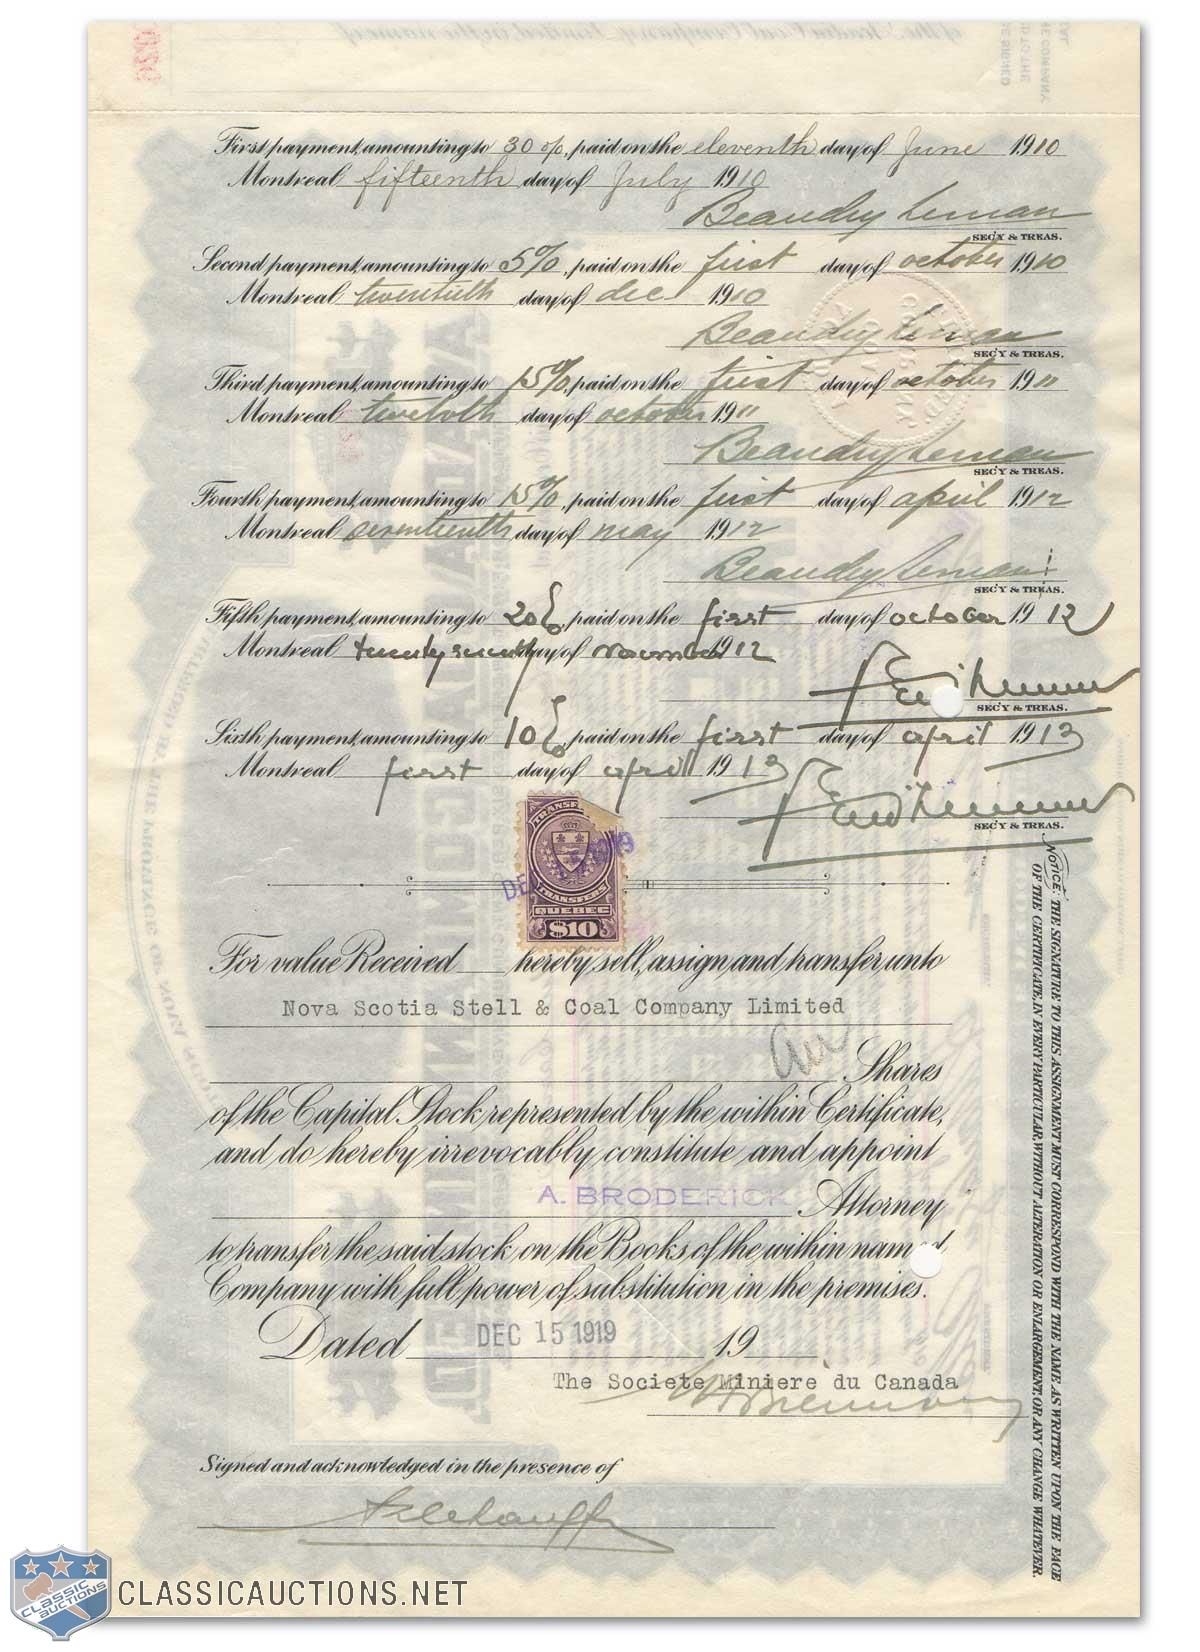 First payment, amounting to 30 %, paid on the eleventh day of June 1910
Montreal fifteenth day of July 1910
Beaudry Leman
SEC'Y & TREAS.
Second payment, amounting to 5%, paid on the first day of october 1910
Montreal twentieth day of dec 1910
Beaudry Leman
SEC'Y & TREAS.
Third payment, amounting to 15%, paid on the first day of october 1911
Montreal day of october 1911
Beaudry Leman
SEC'Y & TREAS.
Fourth payment, amounting to 15%, paid on the first day of april 1912
Montreal seventeenth day of may 1912
Beaudry Leman
SEC'Y & TREAS.
Fifth payment, amounting to 20%, paid on the first day of october 1912
Montreal day of 1912
SEC'Y & TREAS.
Sixth payment, amounting to 10%, paid on the first day of april 1913
Montreal first day of april 1913
SEC'Y & TREAS.
TRANSFERS
QUEBEC
$10
For value Received hereby sell, assign, and transfer, unto
Nova Scotia Stell & Coal Company Limited
Shares
of the Capital Stock represented by the within Certificate,
and do hereby irrevocably constitute and appoint
A. BRODERICK Attorney
to transfer the said stock on the Books of the within named
Company with full power of substitution in the premises.
Dated DEC 15 1919 19
The Societe Miniere du Canada
Signed and acknowledged in the presence of
NOTICE: THE SIGNATURE TO THIS ASSIGNMENT MUST CORRESPOND WITH THE NAME AS WRITTEN UPON THE FACE
OF THE CERTIFICATE, IN EVERY PARTICULAR, WITHOUT ALTERATION OR ENLARGEMENT, OR ANY CHANGE WHATEVER.
CLASSIC AUCTIONS
CLASSICAUCTIONS.NET